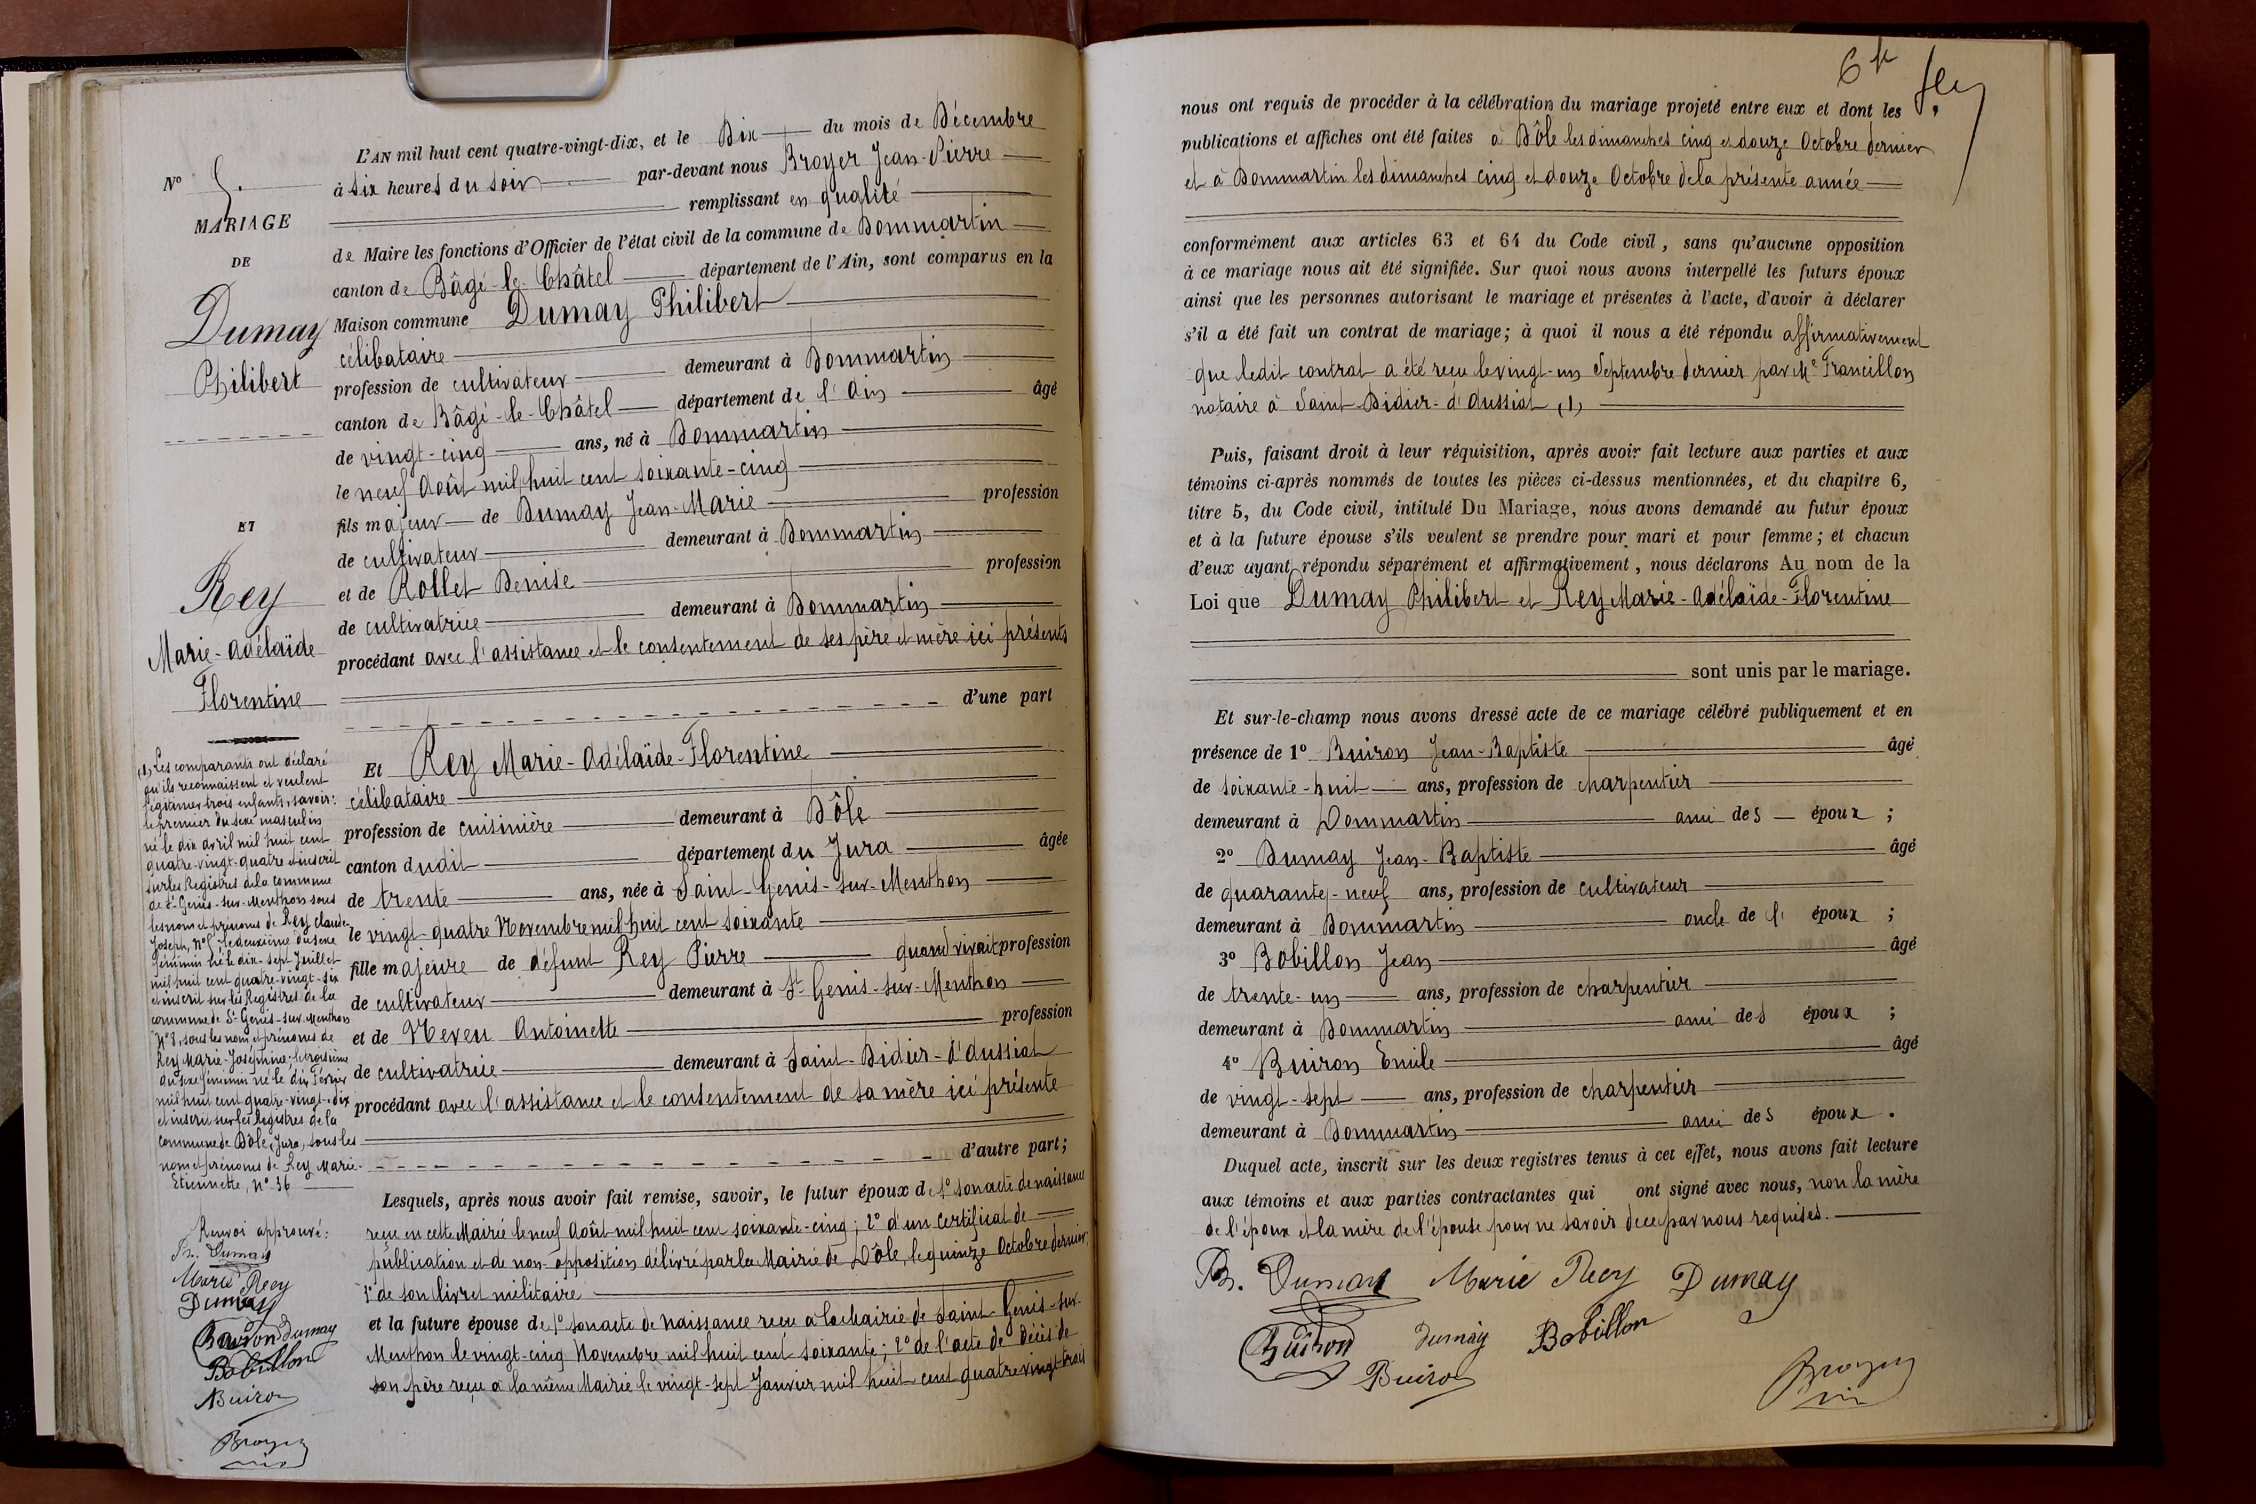 N° 5.
MARIAGE
DE
Dumay
Philibert
ET
Rey
Marie-Adélaïde
Florentine
(1) Les comparants ont déclaré
qu'ils reconnaissent et veulent
légitimer trois enfants, savoir:
le premier du sexe masculin
né le dix avril mil huit cent
quatre-vingt-quatre et inscrit
sur les Registres de la commune
de St-Genis-sur-Menthon sous
les nom et prénoms de Rey Claude
Joseph, N° le deuxième du sexe
féminin né le dix-sept Juillet
mil huit cent quatre-vingt-six
et inscrit sur les Registres de la
commune de St-Genis-sur-Menthon
N° 8, sous les nom et prénoms de
Rey Marie-Joséphine; le troisième
du sexe féminin né le dix Février
mil huit cent quatre-vingt-dix
et inscrit sur les Registres de la
commune de Dôle, Jura, sous les
nom et prénoms de Rey Marie-
Etiennette, N° 36
Renvoi approuvé:
Ph. Dumay
Marie Rey
Dumay
Buiron Dumay
Bobillon
Buiron
Broyer
L'AN mil huit cent quatre-vingt-dix, et le Dix du mois de Décembre
à six heures du soir par-devant nous Broyer Jean-Pierre
remplissant en qualité
de Maire les fonctions d'Officier de l'état civil de la commune de Dommartin
canton de Bâgé-le-Châtel département de l'Ain, sont comparus en la
Maison commune Dumay Philibert
célibataire
profession de cultivateur demeurant à Dommartin
canton de Bâgé-le-Châtel département de l'Ain âgé
de vingt-cinq ans, né à Dommartin
le neuf Août mil huit cent soixante-cinq
fils majeur de Dumay Jean-Marie profession
de cultivateur demeurant à Dommartin
et de Rollet Denise profession
de cultivatrice demeurant à Dommartin
procédant avec l'assistance et le consentement de ses père et mère ici présents
d'une part
Et Rey Marie-Adélaïde-Florentine
célibataire
profession de cuisinière demeurant à Dôle
canton dudit département du Jura âgée
de trente ans, née à Saint-Genis-sur-Menthon
le vingt-quatre Novembre mil huit cent soixante
fille majeure de défunt Rey Pierre quand vivait profession
de cultivateur demeurant à St-Genis-sur-Menthon
et de Neveu Antoinette profession
de cultivatrice demeurant à Saint-Didier-d'Aussiat
procédant avec l'assistance et le consentement de sa mère ici présente
d'autre part;
Lesquels, après nous avoir fait remise, savoir, le futur époux de 1° son acte de naissance
reçu en cette Mairie le neuf Août mil huit cent soixante-cinq; 2° d'un certificat de
publication et de non-opposition délivré par la Mairie de Dôle, le quinze Octobre dernier
3° de son livret militaire
et la future épouse de 1° son acte de naissance reçu à la Mairie de Saint-Genis-sur-
Menthon le vingt-cinq Novembre mil huit cent soixante; 2° de l'acte de décès de
son père reçu à la même Mairie le vingt-sept Janvier mil huit cent quatre vingt-trois
nous ont requis de procéder à la célébration du mariage projeté entre eux et dont les
publications et affiches ont été faites à Dôle les dimanches cinq et douze Octobre dernier
et à Dommartin les dimanches cinq et douze Octobre de la présente année
conformément aux articles 63 et 64 du Code civil, sans qu'aucune opposition
à ce mariage nous ait été signifiée. Sur quoi nous avons interpellé les futurs époux
ainsi que les personnes autorisant le mariage et présentes à l'acte, d'avoir à déclarer
s'il a été fait un contrat de mariage; à quoi il nous a été répondu affirmativement
que ledit contrat a été reçu le vingt-un Septembre dernier par Me Francillon
notaire à Saint-Didier-d'Aussiat (1)
Puis, faisant droit à leur réquisition, après avoir fait lecture aux parties et aux
témoins ci-après nommés de toutes les pièces ci-dessus mentionnées, et du chapitre 6,
titre 5, du Code civil, intitulé Du Mariage, nous avons demandé au futur époux
et à la future épouse s'ils veulent se prendre pour mari et pour femme; et chacun
d'eux ayant répondu séparément et affirmativement, nous déclarons Au nom de la
Loi que Dumay Philibert et Rey Marie-Adélaïde-Florentine
sont unis par le mariage.
Et sur-le-champ nous avons dressé acte de ce mariage célébré publiquement et en
présence de 1° Buiron Jean-Baptiste âgé
de soixante-huit ans, profession de charpentier
demeurant à Dommartin ami des époux ;
2° Dumay Jean-Baptiste âgé
de quarante-neuf ans, profession de cultivateur
demeurant à Dommartin oncle de l' époux ;
3° Bobillon Jean âgé
de trente-un ans, profession de charpentier
demeurant à Dommartin ami des époux ;
4° Buiron Emile âgé
de vingt-sept ans, profession de charpentier
demeurant à Dommartin ami des époux .
Duquel acte, inscrit sur les deux registres tenus à cet effet, nous avons fait lecture
aux témoins et aux parties contractantes qui ont signé avec nous, non la mère
de l'époux et la mère de l'épouse pour ne savoir de ce par nous requises.
Ph. Dumay Marie Rey Dumay
Buiron Dumay Bobillon
Buiron Broyer